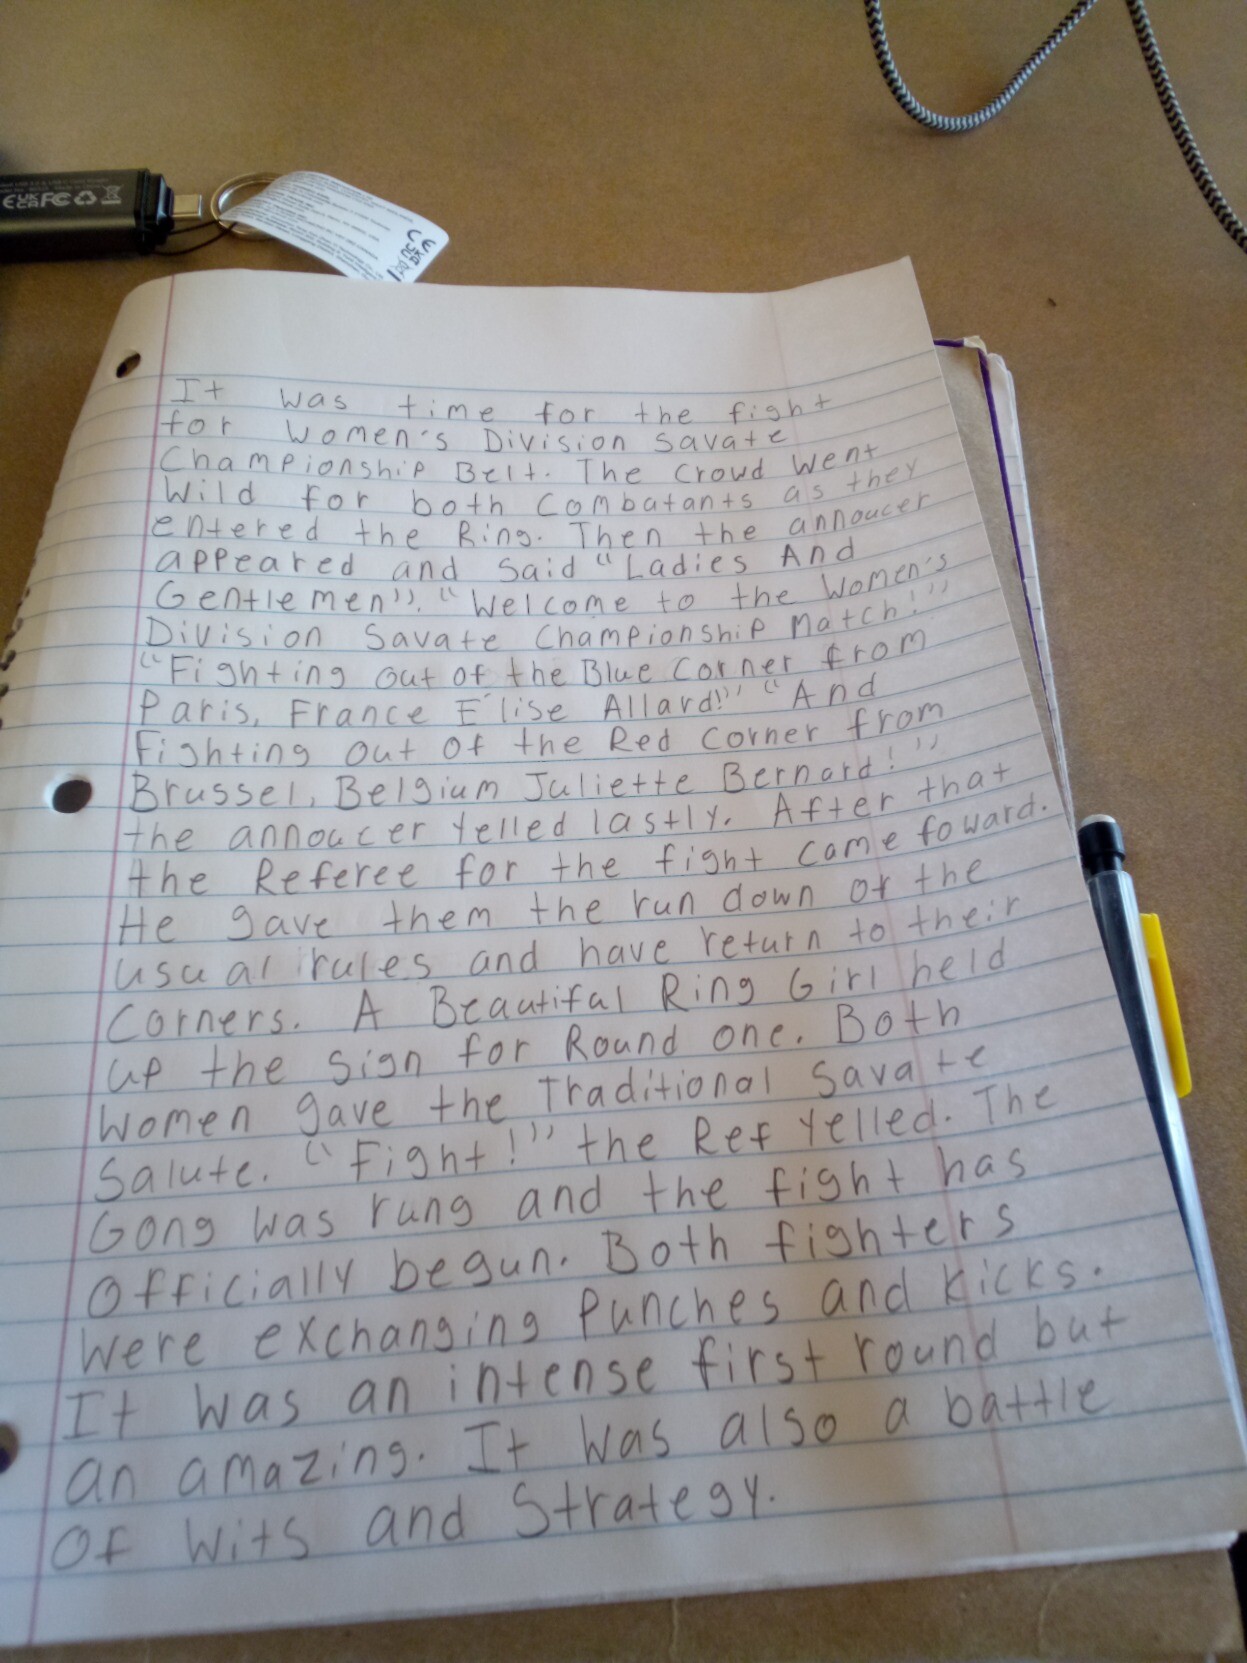 It was time for the fight
for Women's Division Savate
Championship Belt. The Crowd Went
Wild for both Combatants as they
entered the Ring. Then the annoucer
appeared and said "Ladies And
Gentlemen". "Welcome to the Women's
Division Savate Championship Match!"
"Fighting out of the Blue Corner from
Paris, France E'lise Allard!" "And
Fighting out of the Red Corner from
Brussel, Belgium Juliette Bernard!"
the annoucer Yelled lastly. After that
the Referee for the fight came foward.
He gave them the run down of the
usual rules and have return to their
Corners. A Beautiful Ring Girl held
up the sign for Round one. Both
Women gave the Traditional Savate
Salute. "Fight!" the Ref Yelled. The
Gong was rung and the fight has
Officially begun. Both fighters
Were exchanging Punches and Kicks.
It was an intense first round but
an amazing. It was also a battle
Of Wits and Strategy.